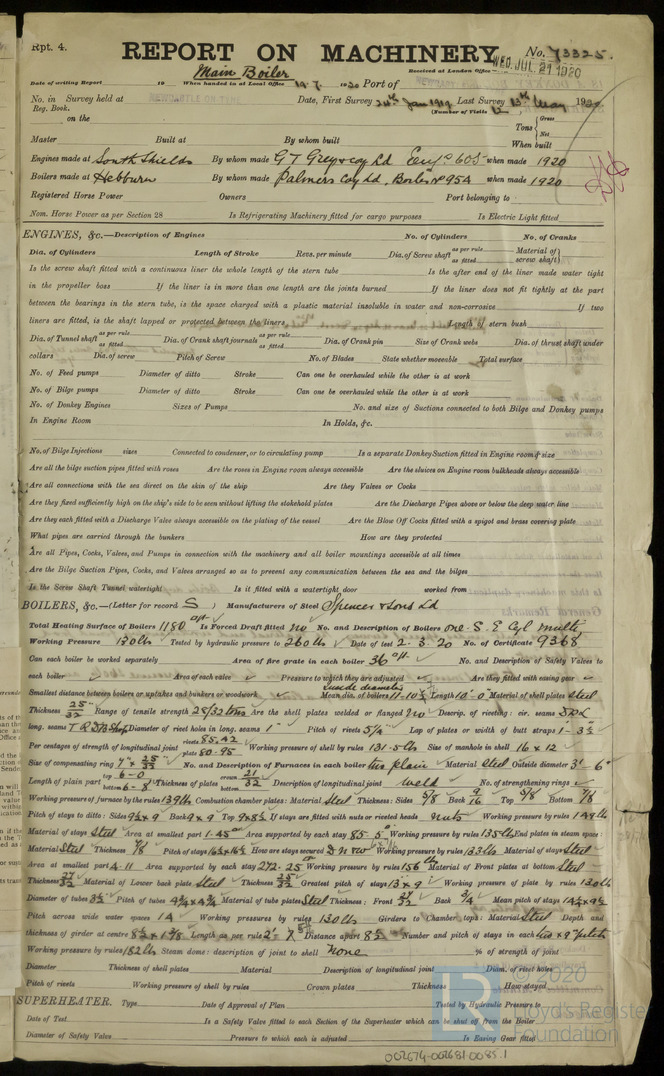 Rpt. 4.
REPORT ON MACHINERY
No. 73325.
WED. JUL. 21 1920
Main Boiler
Received at London Office
Date of writing Report 19 When handed in at Local Office 19.7. 1920 Port of
No. in Survey held at NEWCASTLE-ON-TYNE Date, First Survey 24th Jan 1919 Last Survey 13th May 1920
Reg. Book. (Number of Visits
on the Tons Gross Net
Master Built at By whom built When built
Engines made at South Shields By whom made G T Grey & Coy Ld Eng No 605 when made 1920
Boilers made at Hebburn By whom made Palmers Coy Ld. Boiler No 954 when made 1920
Registered Horse Power Owners Port belonging to
Nom. Horse Power as per Section 28 Is Refrigerating Machinery fitted for cargo purposes Is Electric Light fitted
ENGINES, &c.—Description of Engines No. of Cylinders No. of Cranks
Dia. of Cylinders Length of Stroke Revs. per minute Dia. of Screw shaft as per rule as fitted Material of screw shaft
Is the screw shaft fitted with a continuous liner the whole length of the stern tube Is the after end of the liner made water tight
in the propeller boss If the liner is in more than one length are the joints burned If the liner does not fit tightly at the part
between the bearings in the stern tube, is the space charged with a plastic material insoluble in water and non-corrosive If two
liners are fitted, is the shaft lapped or protected between the liners Length of stern bush
Dia. of Tunnel shaft as per rule as fitted Dia. of Crank shaft journals as per rule as fitted Dia. of Crank pin Size of Crank webs Dia. of thrust shaft under
collars Dia. of screw Pitch of Screw No. of Blades State whether moveable Total surface
No. of Feed pumps Diameter of ditto Stroke Can one be overhauled while the other is at work
No. of Bilge pumps Diameter of ditto Stroke Can one be overhauled while the other is at work
No. of Donkey Engines Sizes of Pumps No. and size of Suctions connected to both Bilge and Donkey pumps
In Engine Room In Holds, &c.
No. of Bilge Injections sizes Connected to condenser, or to circulating pump Is a separate Donkey Suction fitted in Engine room & size
Are all the bilge suction pipes fitted with roses Are the roses in Engine room always accessible Are the sluices on Engine room bulkheads always accessible
Are all connections with the sea direct on the skin of the ship Are they Valves or Cocks
Are they fixed sufficiently high on the ship's side to be seen without lifting the stokehold plates Are the Discharge Pipes above or below the deep water line
Are they each fitted with a Discharge Valve always accessible on the plating of the vessel Are the Blow Off Cocks fitted with a spigot and brass covering plate
What pipes are carried through the bunkers How are they protected
Are all Pipes, Cocks, Valves, and Pumps in connection with the machinery and all boiler mountings accessible at all times
Are the Bilge Suction Pipes, Cocks, and Valves arranged so as to prevent any communication between the sea and the bilges
Is the Screw Shaft Tunnel watertight Is it fitted with a watertight door worked from
BOILERS, &c.—(Letter for record S) Manufacturers of Steel Spencer & Sons Ld
Total Heating Surface of Boilers 1180 sq ft Is Forced Draft fitted No No. and Description of Boilers one S. E Cyl multr
Working Pressure 130 lbs Tested by hydraulic pressure to 260 lbs Date of test 2. 3. 20 No. of Certificate 9368
Can each boiler be worked separately Area of fire grate in each boiler 36 sq ft No. and Description of Safety Valves to
each boiler Area of each valve Pressure to which they are adjusted Are they fitted with easing gear
Smallest distance between boilers or uptakes and bunkers or woodwork inside diameter Mean dia. of boilers 11-10 5/8 Length 10'-0" Material of shell plates Steel
Thickness 25/32 Range of tensile strength 28/32 tons Are the shell plates welded or flanged No Descrip. of riveting: cir. seams
long. seams T R D B Strap Diameter of rivet holes in long. seams 1" Pitch of rivets 5 1/4 Lap of plates or width of butt straps 1-3 1/2
Per centages of strength of longitudinal joint rivets 85.42 plate 80.95 Working pressure of shell by rules 131.5 lbs Size of manhole in shell 16 x 12
Size of compensating ring 7" x 25/32 No. and Description of Furnaces in each boiler two plain Material Steel Outside diameter 3'-6"
Length of plain part top 6-0 bottom 6-8 Thickness of plates crown bottom 21/32 Description of longitudinal joint weld No. of strengthening rings
Working pressure of furnace by the rules 139 lbs Combustion chamber plates: Material Steel Thickness: Sides 5/8 Back 9/16 Top 5/8 Bottom 7/8
Pitch of stays to ditto: Sides 9 1/2 x 9 Back 9 x 9 Top 9 x 8 1/2 If stays are fitted with nuts or riveted heads nuts Working pressure by rules 144 lbs
Material of stays Steel Area at smallest part 1.45 Area supported by each stay 85.5 Working pressure by rules 135 lbs End plates in steam space:
Material Steel Thickness 7/8 Pitch of stays 16 1/2 x 16 1/2 How are stays secured D N & W Working pressure by rules 133 lbs Material of stays Steel
Area at smallest part 4.11 Area supported by each stay 272.25 Working pressure by rules 156 lbs Material of Front plates at bottom Steel
Thickness 27/32 Material of Lower back plate Steel Thickness 25/32 Greatest pitch of stays 13 x 9 Working pressure of plate by rules 130 lbs
Diameter of tubes 3 1/2 Pitch of tubes 4 3/4 x 4 3/4 Material of tube plates Steel Thickness: Front 27/32 Back 3/4 Mean pitch of stays 14 1/4 x 9 1/2
Pitch across wide water spaces 14 Working pressures by rules 130 lbs Girders to Chamber tops: Material Steel Depth and
thickness of girder at centre 8 1/2 x 1 5/8 Length as per rule 2'-7 Distance apart 8 1/2 Number and pitch of stays in each two x 9" pitch
Working pressure by rules 182 lbs Steam dome: description of joint to shell None % of strength of joint
Diameter Thickness of shell plates Material Description of longitudinal joint Diam. of rivet holes
Pitch of rivets Working pressure of shell by rules Crown plates Thickness How stayed
SUPERHEATER. Type Date of Approval of Plan Tested by Hydraulic Pressure to
Date of Test Is a Safety Valve fitted to each Section of the Superheater which can be shut off from the Boiler
Diameter of Safety Valve Pressure to which each is adjusted Is Easing Gear fitted
© 2020
Lloyd's Register
Foundation
002674-002681-0085.1